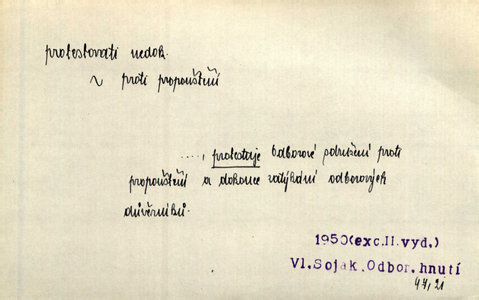 protestovati nedok.
~ proti propouštění
...., protestuje Odborové sdružení proti
propouštění a dokonce zatýkání odborových
důvěrníků.
1950(exc.II.vyd.)
Vl.Soják.Odbor.hnutí
47,21